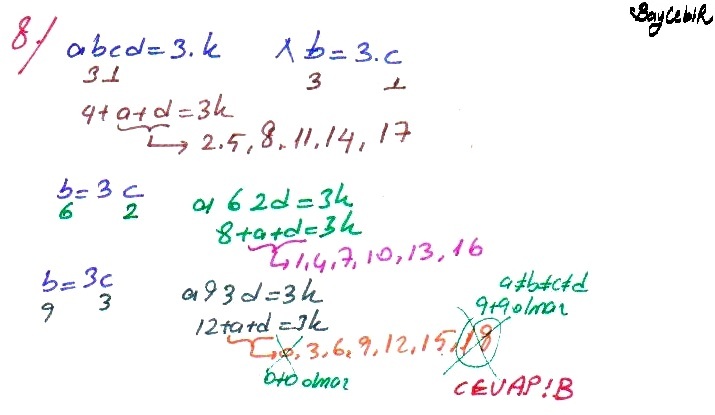 BayCebiR
8/ abcd = 3.k ∧ b = 3.c
31 3 1
4+a+d = 3k
→ 2.5, 8, 11, 14, 17
b = 3 c a 6 2 d = 3k
6 2 8+a+d = 3k
→ 1, 4, 7, 10, 13, 16
b = 3c a 9 3 d = 3k
9 3 12+a+d = 3k
→ 0, 3, 6, 9, 12, 15, 18
0+0 olmaz
a≠b≠c≠d
9+9 olmaz
CEVAP: B